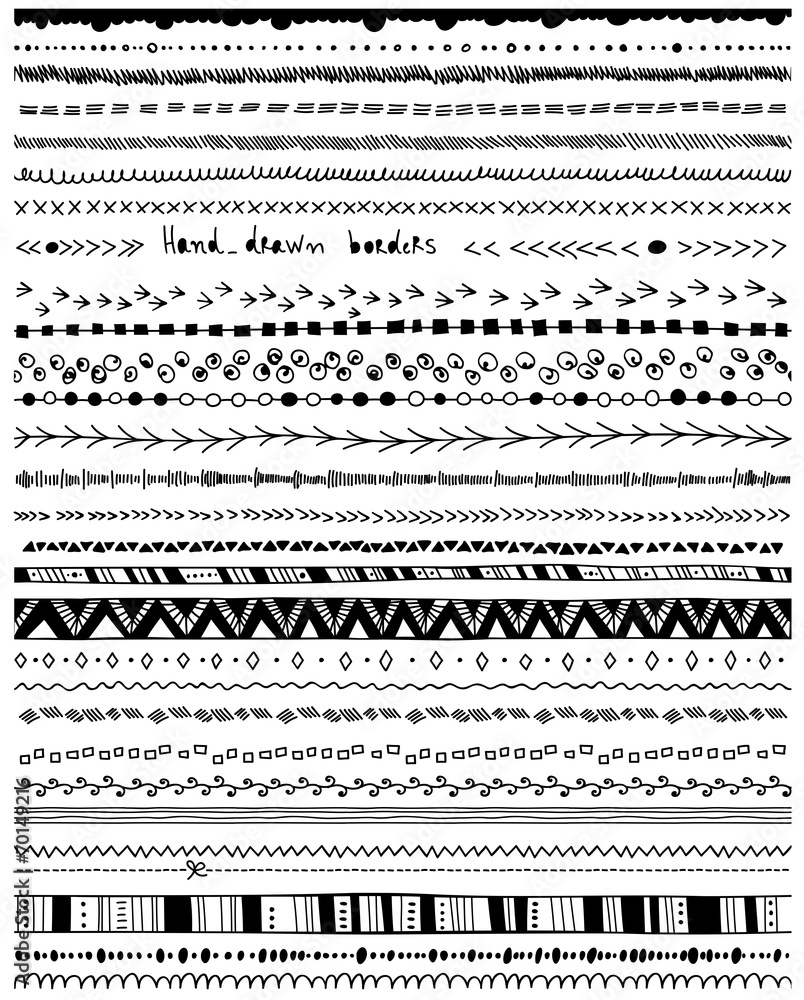 Hand_drawn borders
Adobe Stock | #70149216